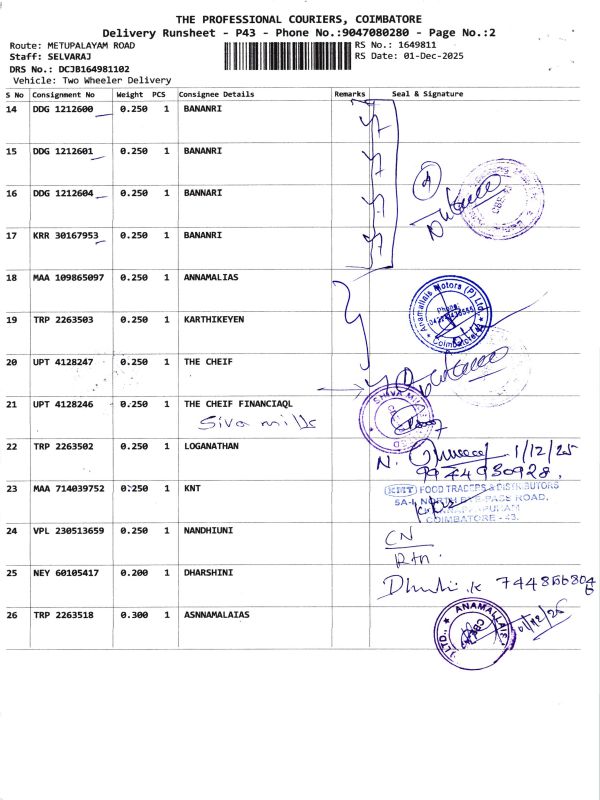 THE PROFESSIONAL COURIERS, COIMBATORE
Delivery Runsheet - P43 - Phone No.:9047080280 - Page No.:2
Route: METUPALAYAM ROAD
Staff: SELVARAJ
DRS No.: DCJB164981102
Vehicle: Two Wheeler Delivery
RS No.: 1649811
RS Date: 01-Dec-2025
S No Consignment No Weight PCS Consignee Details Remarks Seal & Signature
14 DDG 1212600 0.250 1 BANANRI
15 DDG 1212601 0.250 1 BANANRI
16 DDG 1212604 0.250 1 BANNARI
17 KRR 30167953 0.250 1 BANANRI
18 MAA 109865097 0.250 1 ANNAMALIAS
Anamallais Motors (P) Ltd.,
Phone:
Coimbatore
19 TRP 2263503 0.250 1 KARTHIKEYEN
20 UPT 4128247 0.250 1 THE CHEIF
21 UPT 4128246 0.250 1 THE CHEIF FINANCIAQL
Siva mills
SHIVA MILLS
22 TRP 2263502 0.250 1 LOGANATHAN
N. 1/12/25
9944930928.
23 MAA 714039752 0.250 1 KNT
FOOD TRADERS & DISTRIBUTORS
5A-1, NORTH BYE-PASS ROAD.
COIMBATORE - 43.
24 VPL 230513659 0.250 1 NANDHIUNI
CN
Rtn.
25 NEY 60105417 0.200 1 DHARSHINI
26 TRP 2263518 0.300 1 ASNNAMALAIAS
ANAMALLAIS
LTD.,
01/12/25